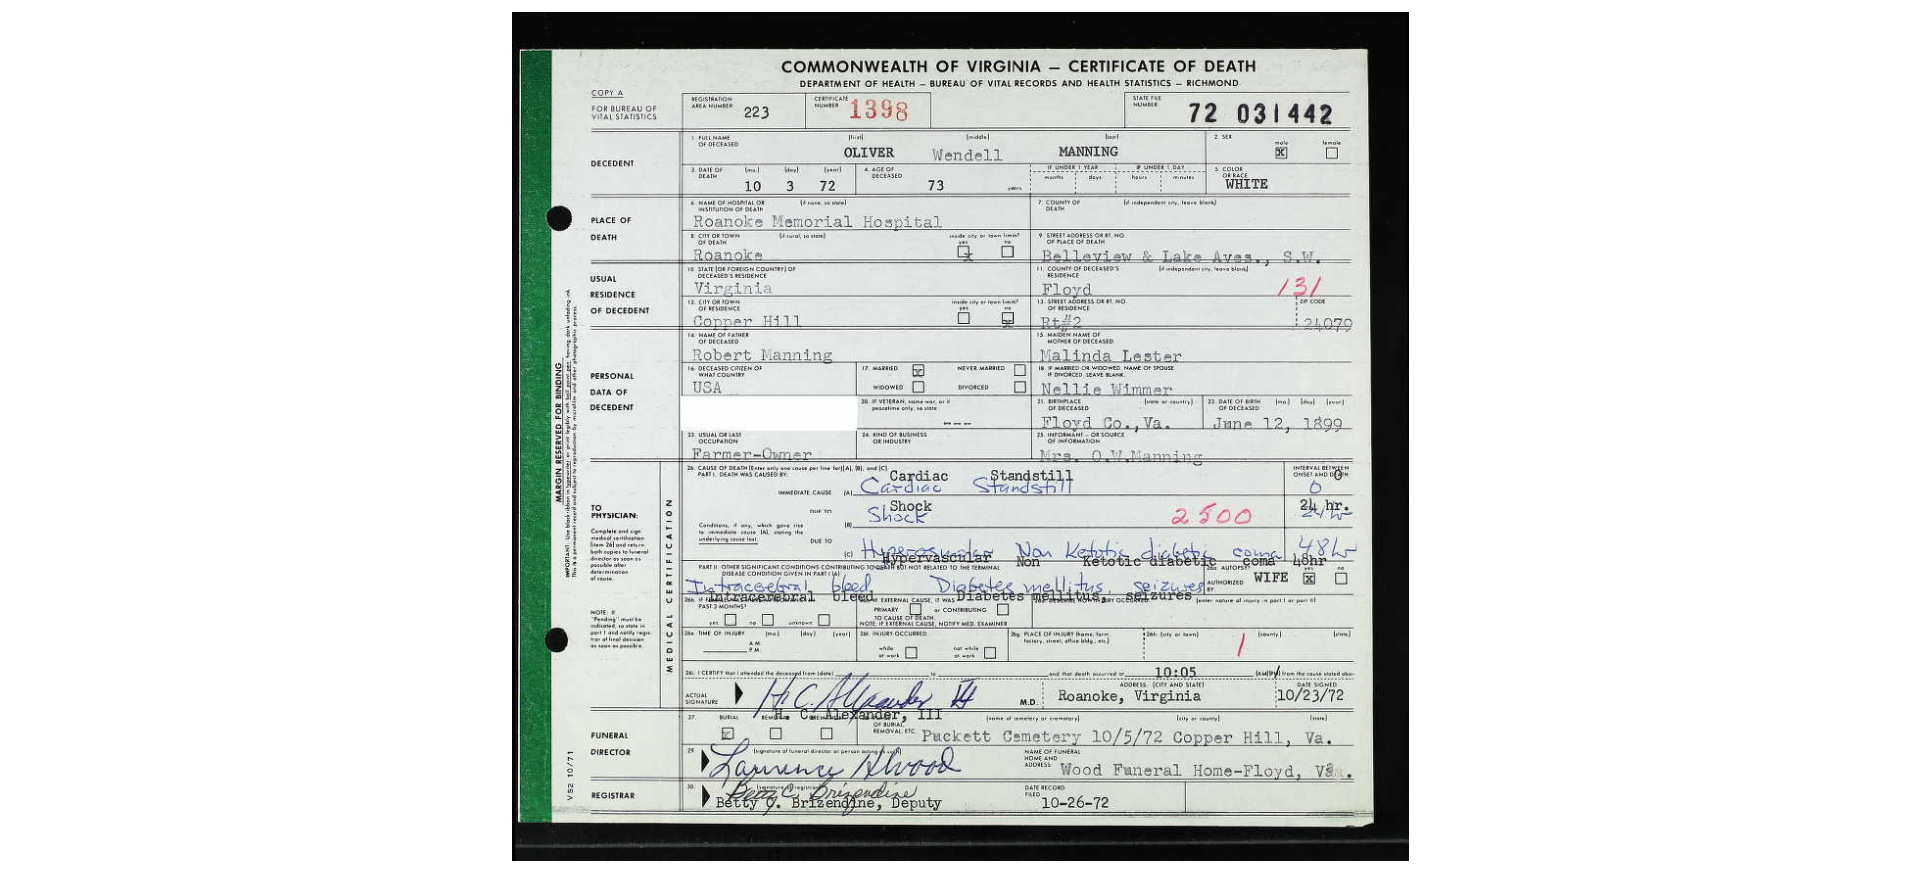 COMMONWEALTH OF VIRGINIA — CERTIFICATE OF DEATH
DEPARTMENT OF HEALTH — BUREAU OF VITAL RECORDS AND HEALTH STATISTICS — RICHMOND
COPY A
FOR BUREAU OF VITAL STATISTICS
REGISTRATION AREA NUMBER 223 CERTIFICATE NUMBER 1398 STATE FILE NUMBER 72 031442
DECEDENT
1. FULL NAME OF DECEASED (first) (middle) (last) 2. SEX male female
OLIVER Wendell MANNING X
3. DATE OF DEATH (mo.) (day) (year) 4. AGE OF DECEASED IF UNDER 1 YEAR months days IF UNDER 1 DAY hours minutes 5. COLOR OR RACE
10 3 72 73 years WHITE
PLACE OF DEATH
6. NAME OF HOSPITAL OR INSTITUTION OF DEATH (if none, so state) 7. COUNTY OF DEATH (if independent city, leave blank)
Roanoke Memorial Hospital
8. CITY OR TOWN OF DEATH (if rural, so state) inside city or town limits? yes no 9. STREET ADDRESS OR RT. NO. OF PLACE OF DEATH
Roanoke x Belleview & Lake Aves., S.W.
USUAL RESIDENCE OF DECEDENT
10. STATE (OR FOREIGN COUNTRY) OF DECEASED'S RESIDENCE 11. COUNTY OF DECEASED'S RESIDENCE (if independent city, leave blank)
Virginia Floyd 131
12. CITY OR TOWN OF RESIDENCE inside city or town limits? yes no 13. STREET ADDRESS OR RT. NO. OF RESIDENCE ZIP CODE
Copper Hill x Rt#2 24079
PERSONAL DATA OF DECEDENT
14. NAME OF FATHER OF DECEASED 15. MAIDEN NAME OF MOTHER OF DECEASED
Robert Manning Malinda Lester
16. DECEASED CITIZEN OF WHAT COUNTRY 17. MARRIED x NEVER MARRIED WIDOWED DIVORCED 18. IF MARRIED OR WIDOWED, NAME OF SPOUSE IF DIVORCED, LEAVE BLANK
USA Nellie Wimmer
20. IF VETERAN, name war, or if peacetime only, so state 21. BIRTHPLACE OF DECEASED (state or country) 22. DATE OF BIRTH OF DECEASED (mo.) (day) (year)
--- Floyd Co.,Va. June 12, 1899
23. USUAL OR LAST OCCUPATION 24. KIND OF BUSINESS OR INDUSTRY 25. INFORMANT – OR SOURCE OF INFORMATION
Farmer-Owner Mrs. O.W.Manning
MARGIN RESERVED FOR BINDING
TO PHYSICIAN:
Complete and sign medical certification (item 26) and return both copies to funeral director as soon as possible after determination of cause.
NOTE: If "Pending" must be indicated, so state in part I and notify registrar of final decision as soon as possible.
MEDICAL CERTIFICATION
26. CAUSE OF DEATH (Enter only one cause per line for (A), (B), and (C). INTERVAL BETWEEN ONSET AND DEATH
PART I. DEATH WAS CAUSED BY:
Cardiac Standstill 0
IMMEDIATE CAUSE (A) Cardiac Standstill 0
DUE TO Shock 24 hr.
(B) Shock 2500 24 hr
Conditions, if any, which gave rise to immediate cause (A), stating the underlying cause last.
DUE TO
(C) Hyperosmolar Non Ketotic diabetic coma 48hr
Hypervascular Non Ketotic diabetic coma 48hr
PART II. OTHER SIGNIFICANT CONDITIONS CONTRIBUTING TO DEATH BUT NOT RELATED TO THE TERMINAL DISEASE CONDITION GIVEN IN PART I (A) 26a. AUTOPSY?
Intracerebral bleed Diabetes mellitus seizures AUTHORIZED BY WIFE X
Intracerebral bleed Diabetes mellitus, seizures
PAST 3 MONTHS? yes no unknown
IF EXTERNAL CAUSE, IT WAS PRIMARY or CONTRIBUTING TO CAUSE OF DEATH
NOTE: IF EXTERNAL CAUSE, NOTIFY MED. EXAMINER
(enter nature of injury in part I or part II)
26e. TIME OF INJURY (mo.) (day) (year) A.M. P.M. 26f. INJURY OCCURRED while at work not while at work 26g. PLACE OF INJURY (home, farm, factory, street, office bldg., etc.) 26h. (city or town) (county) (state)
1
26i. I CERTIFY that I attended the deceased from (date) to and that death occurred at 10:05 from the cause stated above
ACTUAL SIGNATURE H. C. Alexander III M.D. ADDRESS: (CITY AND STATE) Roanoke, Virginia DATE SIGNED 10/23/72
H. C. Alexander, III
FUNERAL DIRECTOR
27. BURIAL x REMOVAL OF BURIAL, REMOVAL, ETC. (name of cemetery or crematory) (city or county) (state)
Puckett Cemetery 10/5/72 Copper Hill, Va.
29. (signature of funeral director or person acting as such) NAME OF FUNERAL HOME AND ADDRESS
Wood Funeral Home-Floyd, Va.
REGISTRAR
30. (signature of registrar) DATE RECORD FILED
Betty C. Brizendine
Betty C. Brizendine, Deputy 10-26-72
VS2 10/71